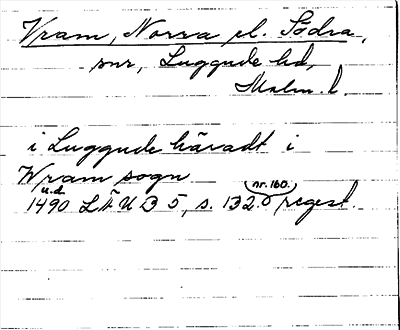 Vram, Norra el. Södra,
snr, Luggude hd,
Malm. l.
i Luggude häradt i
Wram sogn
u.d. nr. 160.
1490 LÄUB 5, s. 132. regest.